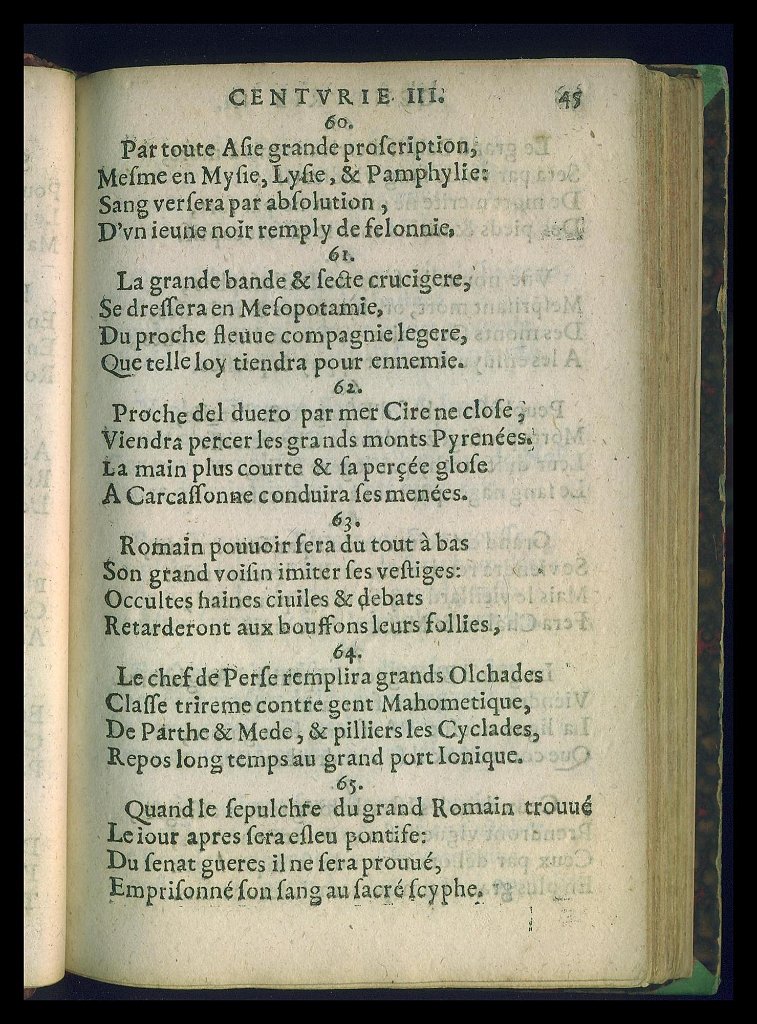 CENTVRIE III. 45
60.
Par toute Aſie grande proſcription,
Meſme en Myſie, Lyſie, & Pamphylie:
Sang verſera par abſolution,
D'vn ieune noir remply de felonnie.
61.
La grande bande & ſecte crucigere,
Se dreſſera en Meſopotamie,
Du proche fleuue compagnie legere,
Que telle loy tiendra pour ennemie.
62.
Proche del duero par mer Cire ne cloſe,
Viendra percer les grands monts Pyrenées.
La main plus courte & ſa perçée gloſe
A Carcaſſonne conduira ſes menées.
63.
Romain pouuoir ſera du tout à bas
Son grand voiſin imiter ſes veſtiges:
Occultes haines ciuiles & debats
Retarderont aux bouffons leurs follies,
64.
Le chef de Perſe remplira grands Olchades
Claſſe trireme contre gent Mahometique,
De Parthe & Mede, & pilliers les Cyclades,
Repos long temps au grand port Ionique.
65.
Quand le ſepulchre du grand Romain trouué
Le iour apres ſera eſleu pontife:
Du ſenat gueres il ne ſera prouué,
Empriſonné ſon ſang au ſacré ſcyphe.